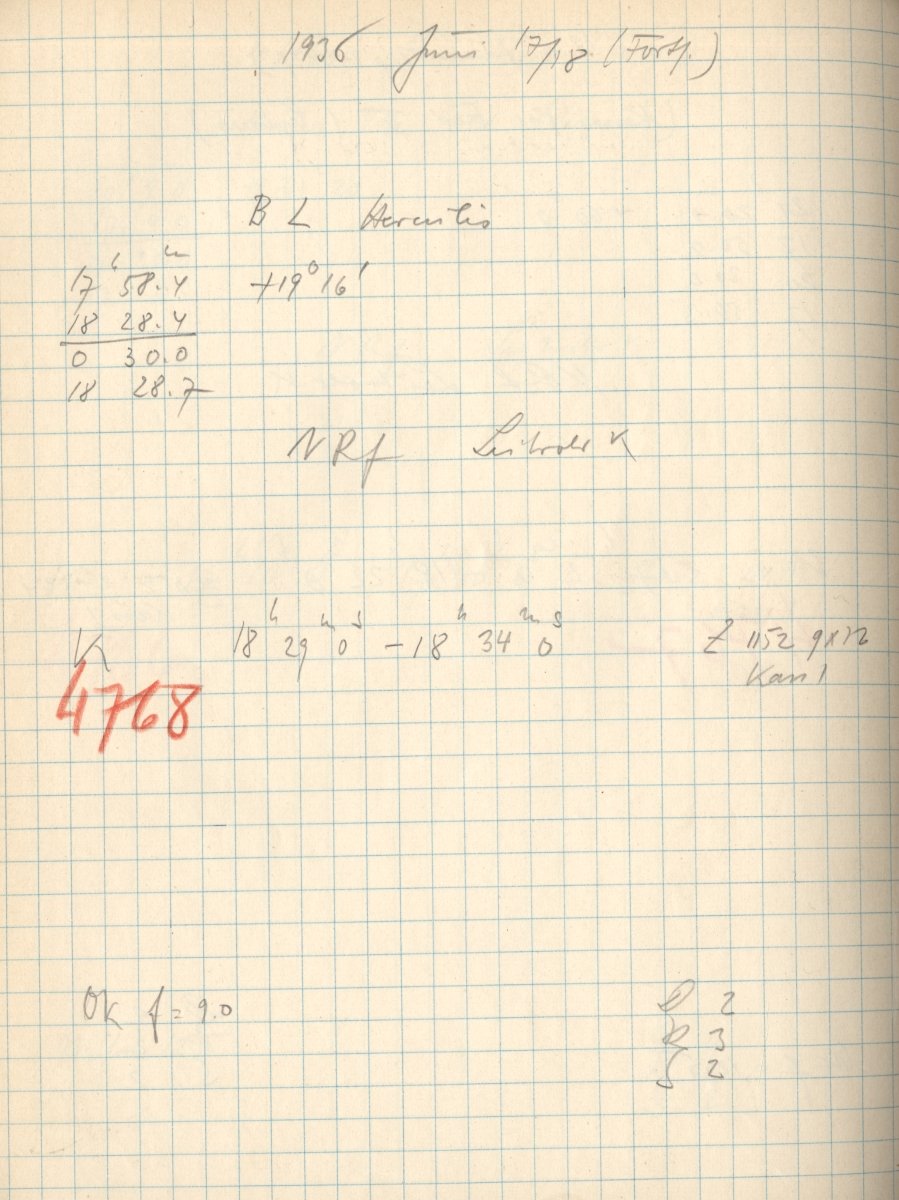 1936 Juni 17/18. (Forts.)
BL Herculis
17 h 58.4 m +19° 16'
18 28.4
0 30.0
18 28.7
NRf
K 18 h 29 m 0 s – 18 h 34 m 0 s Z 1152 9x12
4768
OK f = 9.0
D 2
R 3
S 2